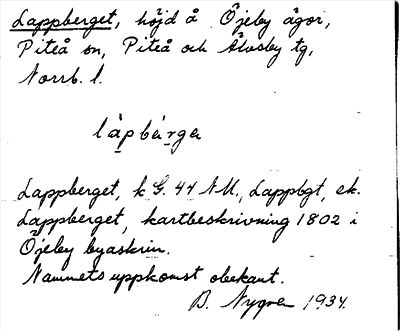 Lappberget, höjd å Öjeby ägor,
Piteå sn, Piteå och Älvsby tg,
Norrb. l.
làpbærge
Lappberget, k G. 44 NM., Lappbgt, ek.
Lappberget, kartbeskrivning 1802 i
Öjeby byaskrin.
Namnets uppkomst obekant.
B. Nygren 1934.